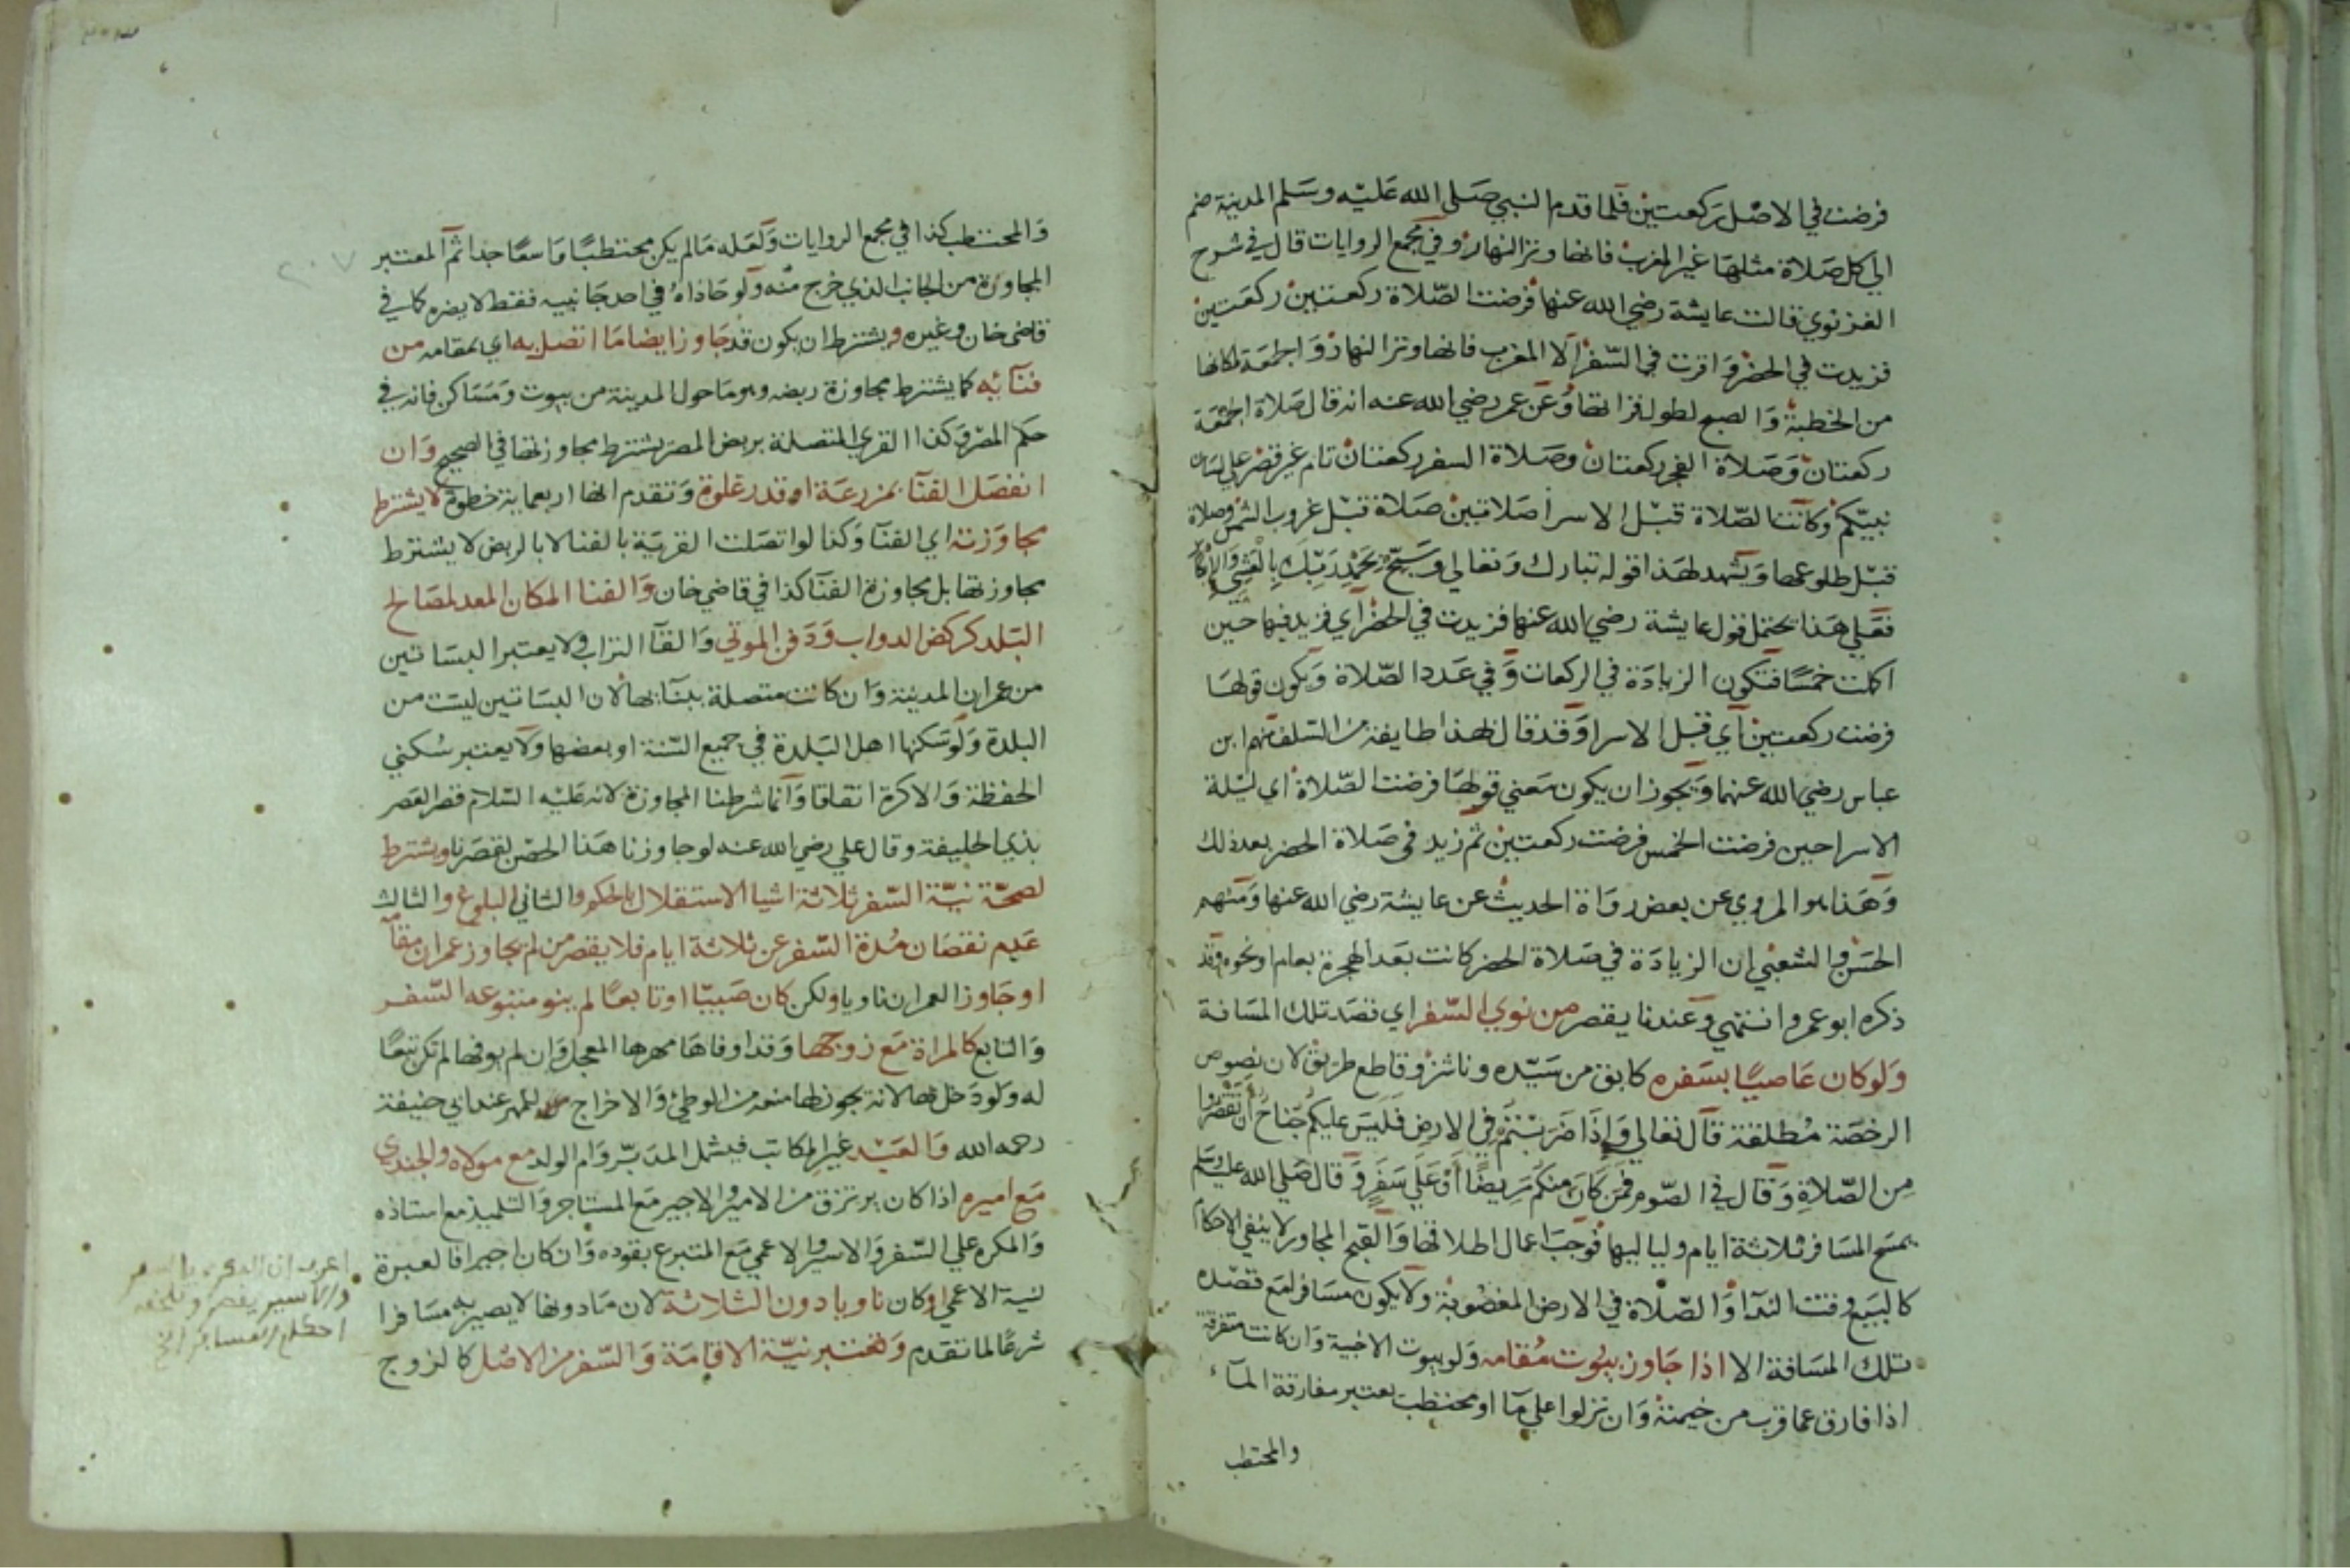 فرضت في الاصل ركعتين فلما قدم النبي صلى الله عليه وسلم المدينة ضم
الي كل صلاة مثلها غير المغرب فانها وتر النهار وفي مجمع الروايات قال في شرح
الغزنوي قالت عايشة رضي الله عنها فرضت الصلاة ركعتين ركعتين
فزيدت في الحضر واقرت في السفر الا المغرب فانها وتر النهار والجمعة لمكانها
من الخطبة والصبح لطول قراتها وعن عمر رضي الله عنه انه قال صلاة الجمعة
ركعتان وصلاة الفجر ركعتان وصلاة السفر ركعتان تام غير قصر علي لسان
نبيكم وكانت الصلاة قبل الاسرا صلاتين صلاة قبل غروب الشمس وصلاة
قبل طلوعها ويشهد لهذا قوله تبارك وتعالي وسبح بحمد ربك بالعشي والابكار
فعلي هذا يحتمل قول عايشة رضي الله عنها فزيدت في الحضر اي فزيد فيها حين
اكملت خمسا فتكون الزيادة في الركعات وفي عدد الصلاة ويكون قولها
فرضت ركعتين اي قبل الاسرا وقد قال لهذا طايفة من السلف منهم ابن
عباس رضي الله عنهما ويجوز ان يكون معني قولها فرضت الصلاة اي ليلة
الاسرا حين فرضت الخمس فرضت ركعتين ثم زيد في صلاة الحضر بعد ذلك
وهذا هو المروي عن بعض رواة الحديث عن عايشة رضي الله عنها ومنهم
الحسن والشعبي ان الزيادة في صلاة الحضر كانت بعد الهجرة بعام او نحوه وقد
ذكره ابو عمرو انتهي وعندنا يقصر من نوي السفر اي قصد تلك المسافة
ولو كان عاصيا بسفره كابق من سيده وناشز وقاطع طريق لان نصوص
الرخصة مطلقة قال تعالي واذا ضربتم في الارض فليس عليكم جناح أن تقصروا
من الصلاة وقال في الصوم فمن كان منكم مريضا أو علي سفر وقال صلي الله عليه وسلم
يمسح المسافر ثلاثة ايام ولياليها فوجب اعمال اطلاقها والقبح المجاور لا ينفي الاحكام
كالبيع وقت الندا والصلاة في الارض المغصوبة ولا يكون مسافرا مع قصده
تلك المسافة الا اذا جاوز بيوت مقامه ولو بيوت الاخبية وان كانت متفرقة
اذا فارق عما قرب من خيمته وان نزلوا علي ما او محتطب يعتبر مفارقة الماء
والمحتطب
٢٠٧
والمحتطب كذا في مجمع الروايات ولعله ما لم يكن محتطبا واسعا جدا ثم المعتبر
المجاوزة من الجانب الذي خرج منه ولو حاذاه في احد جانبيه فقط لا يضره كما في
قاضي خان وغيره ويشترط ان يكون قد جاوز ايضا ما اتصل به اي بمقامه من
فنائه كما يشترط مجاوزة ربضه وهو ما حول المدينة من بيوت ومساكن فانه في
حكم المصر وكذا القري المتصلة بربض المصر يشترط مجاوزتها في الصحيح وان
انفصل الفنا بمزرعة او قدر غلوة وتقدم انها اربعماية خطوة لا يشترط
مجاوزته اي الفنا وكذا لو اتصلت القرية بالفنا لا بالربض لا يشترط
مجاوزتها بل مجاوزة الفنا كذا في قاضي خان والفنا المكان المعد لمصالح
البلد كركض الدواب ودفن الموتي والقا التراب ولا يعتبر البساتين
من عمران المدينة وان كانت متصلة ببنايها لان البساتين ليست من
البلدة ولو سكنها اهل البلدة في جميع السنة او بعضها ولا يعتبر سكني
الحفظة والاكرة اتفاقا وانما شرطنا المجاوزة لانه عليه السلام قصر العصر
بذي الحليفة وقال علي رضي الله عنه لو جاوزنا هذا الخص لقصرنا ويشترط
لصحة نية السفر ثلاثة اشيا الاستقلال بالحكم والثاني البلوغ والثالث
عدم نقصان مدة السفر عن ثلاثة ايام فلا يقصر من لم يجاوز عمران مقامه
او جاوز العمران ناويا ولكن كان صبيا او تابعا لم ينو متبوعه السفر
والتابع كالمراة مع زوجها وقد اوفاها مهرها المعجل وان لم يوفها لم تكن تبعا
له ولو دخل بها لانه يجوز لها منعه من الوطئ والاخراج للمهر عند ابي حنيفة
رحمه الله والعبد غير المكاتب فيشمل المدبر وام الولد مع مولاه والجندي
مع اميره اذا كان يرتزق من الامير والاجير مع المستاجر والتلميذ مع استاذه
والمكره علي السفر والاسير والاعمي مع المتبرع بقوده وان كان اجيرا فالعبرة
لنية الاعمي او كان ناويا دون الثلاثة لان ما دونها لا يصير به مسافرا
شرعا لما تقدم وتعتبر نية الاقامة والسفر من الاصل كالزوج